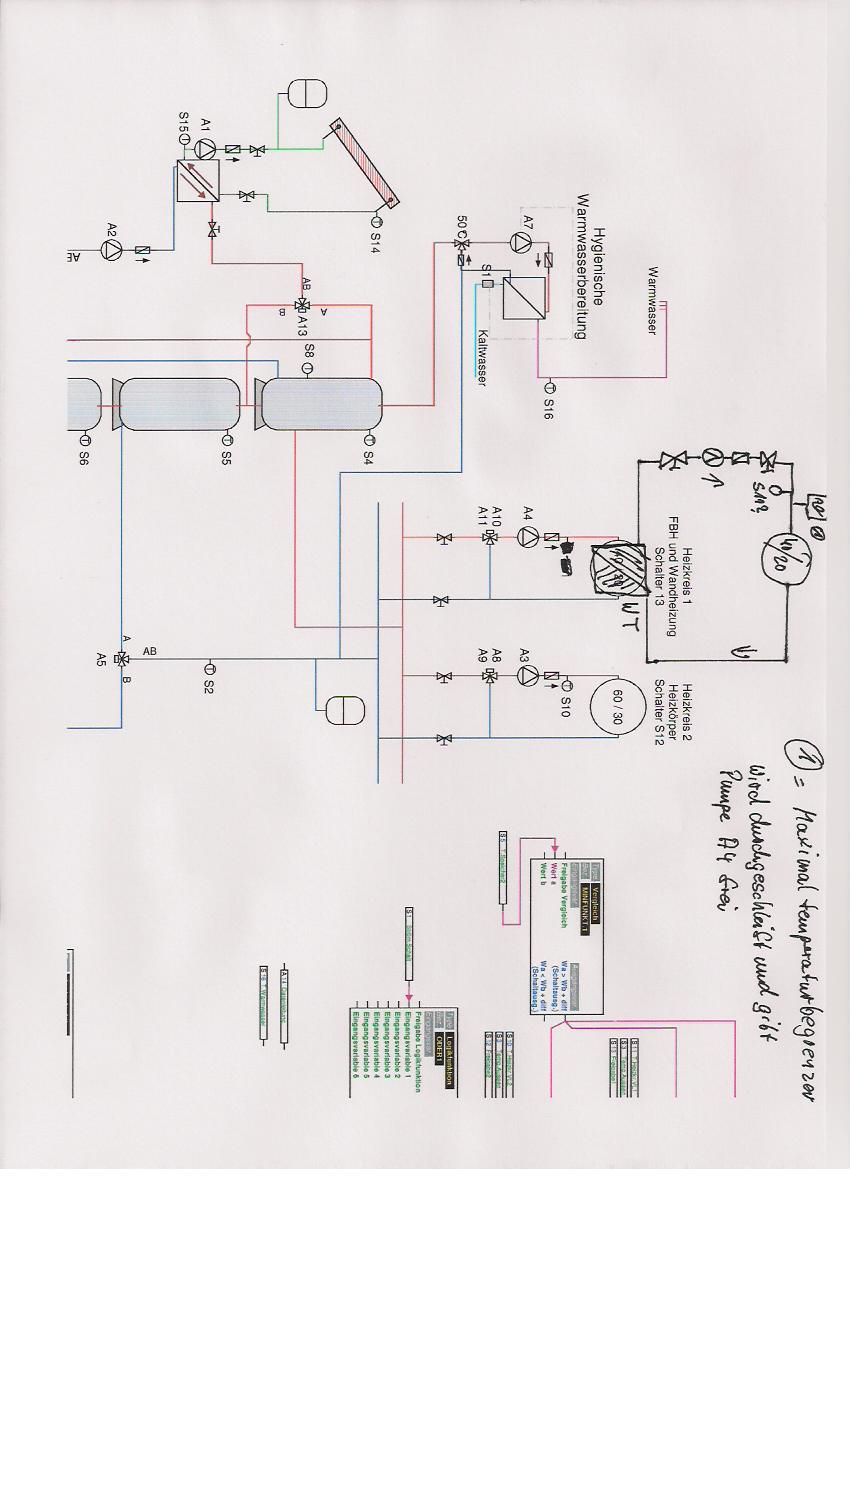 Warmwasser
Hygienische
Warmwasserbereitung
A7
50°C
S1
Kaltwasser
S16
S14
A1
S15
A2
AB
A
B
A13
S8
S4
S5
S6
Heizkreis 1
FBH und Wandheizung
Schalter 13
A4
A10
A11
WT
40/20
S11?
1
Heizkreis 2
Heizkörper
Schalter S12
60 / 30
S10
A3
A8
A9
S2
AB
A
B
A5
1 = Maximaltemperaturbegrenzer
wird durchgeschleift und gibt
Pumpe A4 frei
Vergleich
MINFUNKT.1
Freigabe Vergleich
Wert a
Wert b
Wa > Wb + diff
(Schaltausg.)
Wa < Wb + diff
(Schaltausg.)
Logikfunktion
ODER1
Freigabe Logikfunktion
Eingangsvariable 1
Eingangsvariable 2
Eingangsvariable 3
Eingangsvariable 4
Eingangsvariable 5
Eingangsvariable 6
S16 T.Warmwasser